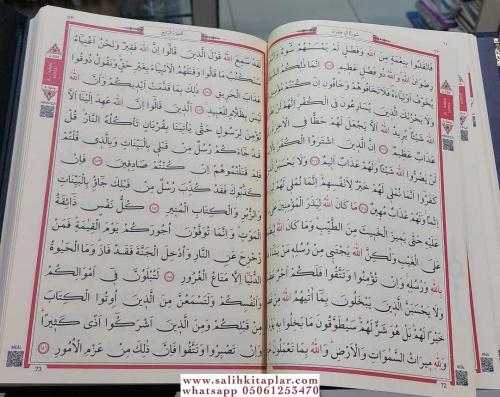 سورة آل عمران
فَانْقَلَبُوا بِنِعْمَةٍ مِنَ اللّٰهِ وَفَضْلٍ لَمْ يَمْسَسْهُمْ سُوءٌ
رِضْوَانَ اللّٰهِ وَاللّٰهُ ذُو فَضْلٍ عَظِيمٍ ١٧٤ اِنَّمَا ذٰلِكُمُ
يُخَوِّفُ اَوْلِيَاءَهُ فَلَا تَخَافُوهُمْ وَخَافُونِ اِنْ كُنْتُمْ
وَلَا يَحْزُنْكَ الَّذِينَ يُسَارِعُونَ فِي الْكُفْرِ اِنَّهُمْ لَنْ
شَيْـًٔا يُرِيدُ اللّٰهُ اَلَّا يَجْعَلَ لَهُمْ حَظًّا فِي الْاٰخِرَةِ
عَذَابٌ عَظِيمٌ ١٧٦ اِنَّ الَّذِينَ اشْتَرَوُا الْكُفْرَ
لَنْ يَضُرُّوا اللّٰهَ شَيْـًٔا وَلَهُمْ عَذَابٌ اَلِيمٌ ١٧٧ وَلَا يَحْسَبَنَّ
كَفَرُوا اَنَّمَا نُمْلِي لَهُمْ خَيْرٌ لِاَنْفُسِهِمْ اِنَّمَا نُمْلِي لَهُمْ
اِثْمًا وَلَهُمْ عَذَابٌ مُهِينٌ ١٧٨ مَا كَانَ اللّٰهُ لِيَذَرَ الْمُؤْمِنِينَ
عَلَيْهِ حَتّٰى يَمِيزَ الْخَبِيثَ مِنَ الطَّيِّبِ وَمَا كَانَ
عَلَى الْغَيْبِ وَلٰكِنَّ اللّٰهَ يَجْتَبِي مِنْ رُسُلِهِ مَنْ
بِاللّٰهِ وَرُسُلِهِ وَاِنْ تُؤْمِنُوا وَتَتَّقُوا فَلَكُمْ اَجْرٌ
وَلَا يَحْسَبَنَّ الَّذِينَ يَبْخَلُونَ بِمَا اٰتٰيهُمُ اللّٰهُ
خَيْرًا لَهُمْ بَلْ هُوَ شَرٌّ لَهُمْ سَيُطَوَّقُونَ مَا بَخِلُوا بِهِ
وَلِلّٰهِ مِيرَاثُ السَّمٰوَاتِ وَالْاَرْضِ وَاللّٰهُ بِمَا تَعْمَلُونَ
72
الجزء الرابع
لَقَدْ سَمِعَ اللّٰهُ قَوْلَ الَّذِينَ قَالُوا اِنَّ اللّٰهَ فَقِيرٌ وَنَحْنُ اَغْنِيَاءُ
سَنَكْتُبُ مَا قَالُوا وَقَتْلَهُمُ الْاَنْبِيَاءَ بِغَيْرِ حَقٍّ وَنَقُولُ ذُوقُوا
عَذَابَ الْحَرِيقِ ١٨١ ذٰلِكَ بِمَا قَدَّمَتْ اَيْدِيكُمْ وَاَنَّ اللّٰهَ
لَيْسَ بِظَلَّامٍ لِلْعَبِيدِ ١٨٢ اَلَّذِينَ قَالُوا اِنَّ اللّٰهَ عَهِدَ اِلَيْنَا اَلَّا
نُؤْمِنَ لِرَسُولٍ حَتّٰى يَأْتِيَنَا بِقُرْبَانٍ تَأْكُلُهُ النَّارُ قُلْ
قَدْ جَاءَكُمْ رُسُلٌ مِنْ قَبْلِي بِالْبَيِّنَاتِ وَبِالَّذِي قُلْتُمْ
فَلِمَ قَتَلْتُمُوهُمْ اِنْ كُنْتُمْ صَادِقِينَ ١٨٣ فَاِنْ
كَذَّبُوكَ فَقَدْ كُذِّبَ رُسُلٌ مِنْ قَبْلِكَ جَاؤُ بِالْبَيِّنَاتِ
وَالزُّبُرِ وَالْكِتَابِ الْمُنِيرِ ١٨٤ كُلُّ نَفْسٍ ذَائِقَةُ
الْمَوْتِ وَاِنَّمَا تُوَفَّوْنَ اُجُورَكُمْ يَوْمَ الْقِيٰمَةِ فَمَنْ
زُحْزِحَ عَنِ النَّارِ وَاُدْخِلَ الْجَنَّةَ فَقَدْ فَازَ وَمَا الْحَيٰوةُ
الدُّنْيَا اِلَّا مَتَاعُ الْغُرُورِ ١٨٥ لَتُبْلَوُنَّ فِي اَمْوَالِكُمْ
وَاَنْفُسِكُمْ وَلَتَسْمَعُنَّ مِنَ الَّذِينَ اُوتُوا الْكِتَابَ
مِنْ قَبْلِكُمْ وَمِنَ الَّذِينَ اَشْرَكُوا اَذًى كَثِيرًا
وَاِنْ تَصْبِرُوا وَتَتَّقُوا فَاِنَّ ذٰلِكَ مِنْ عَزْمِ الْاُمُورِ ١٨٦
73
www.salihkitaplar.com
whatsapp 05061253470